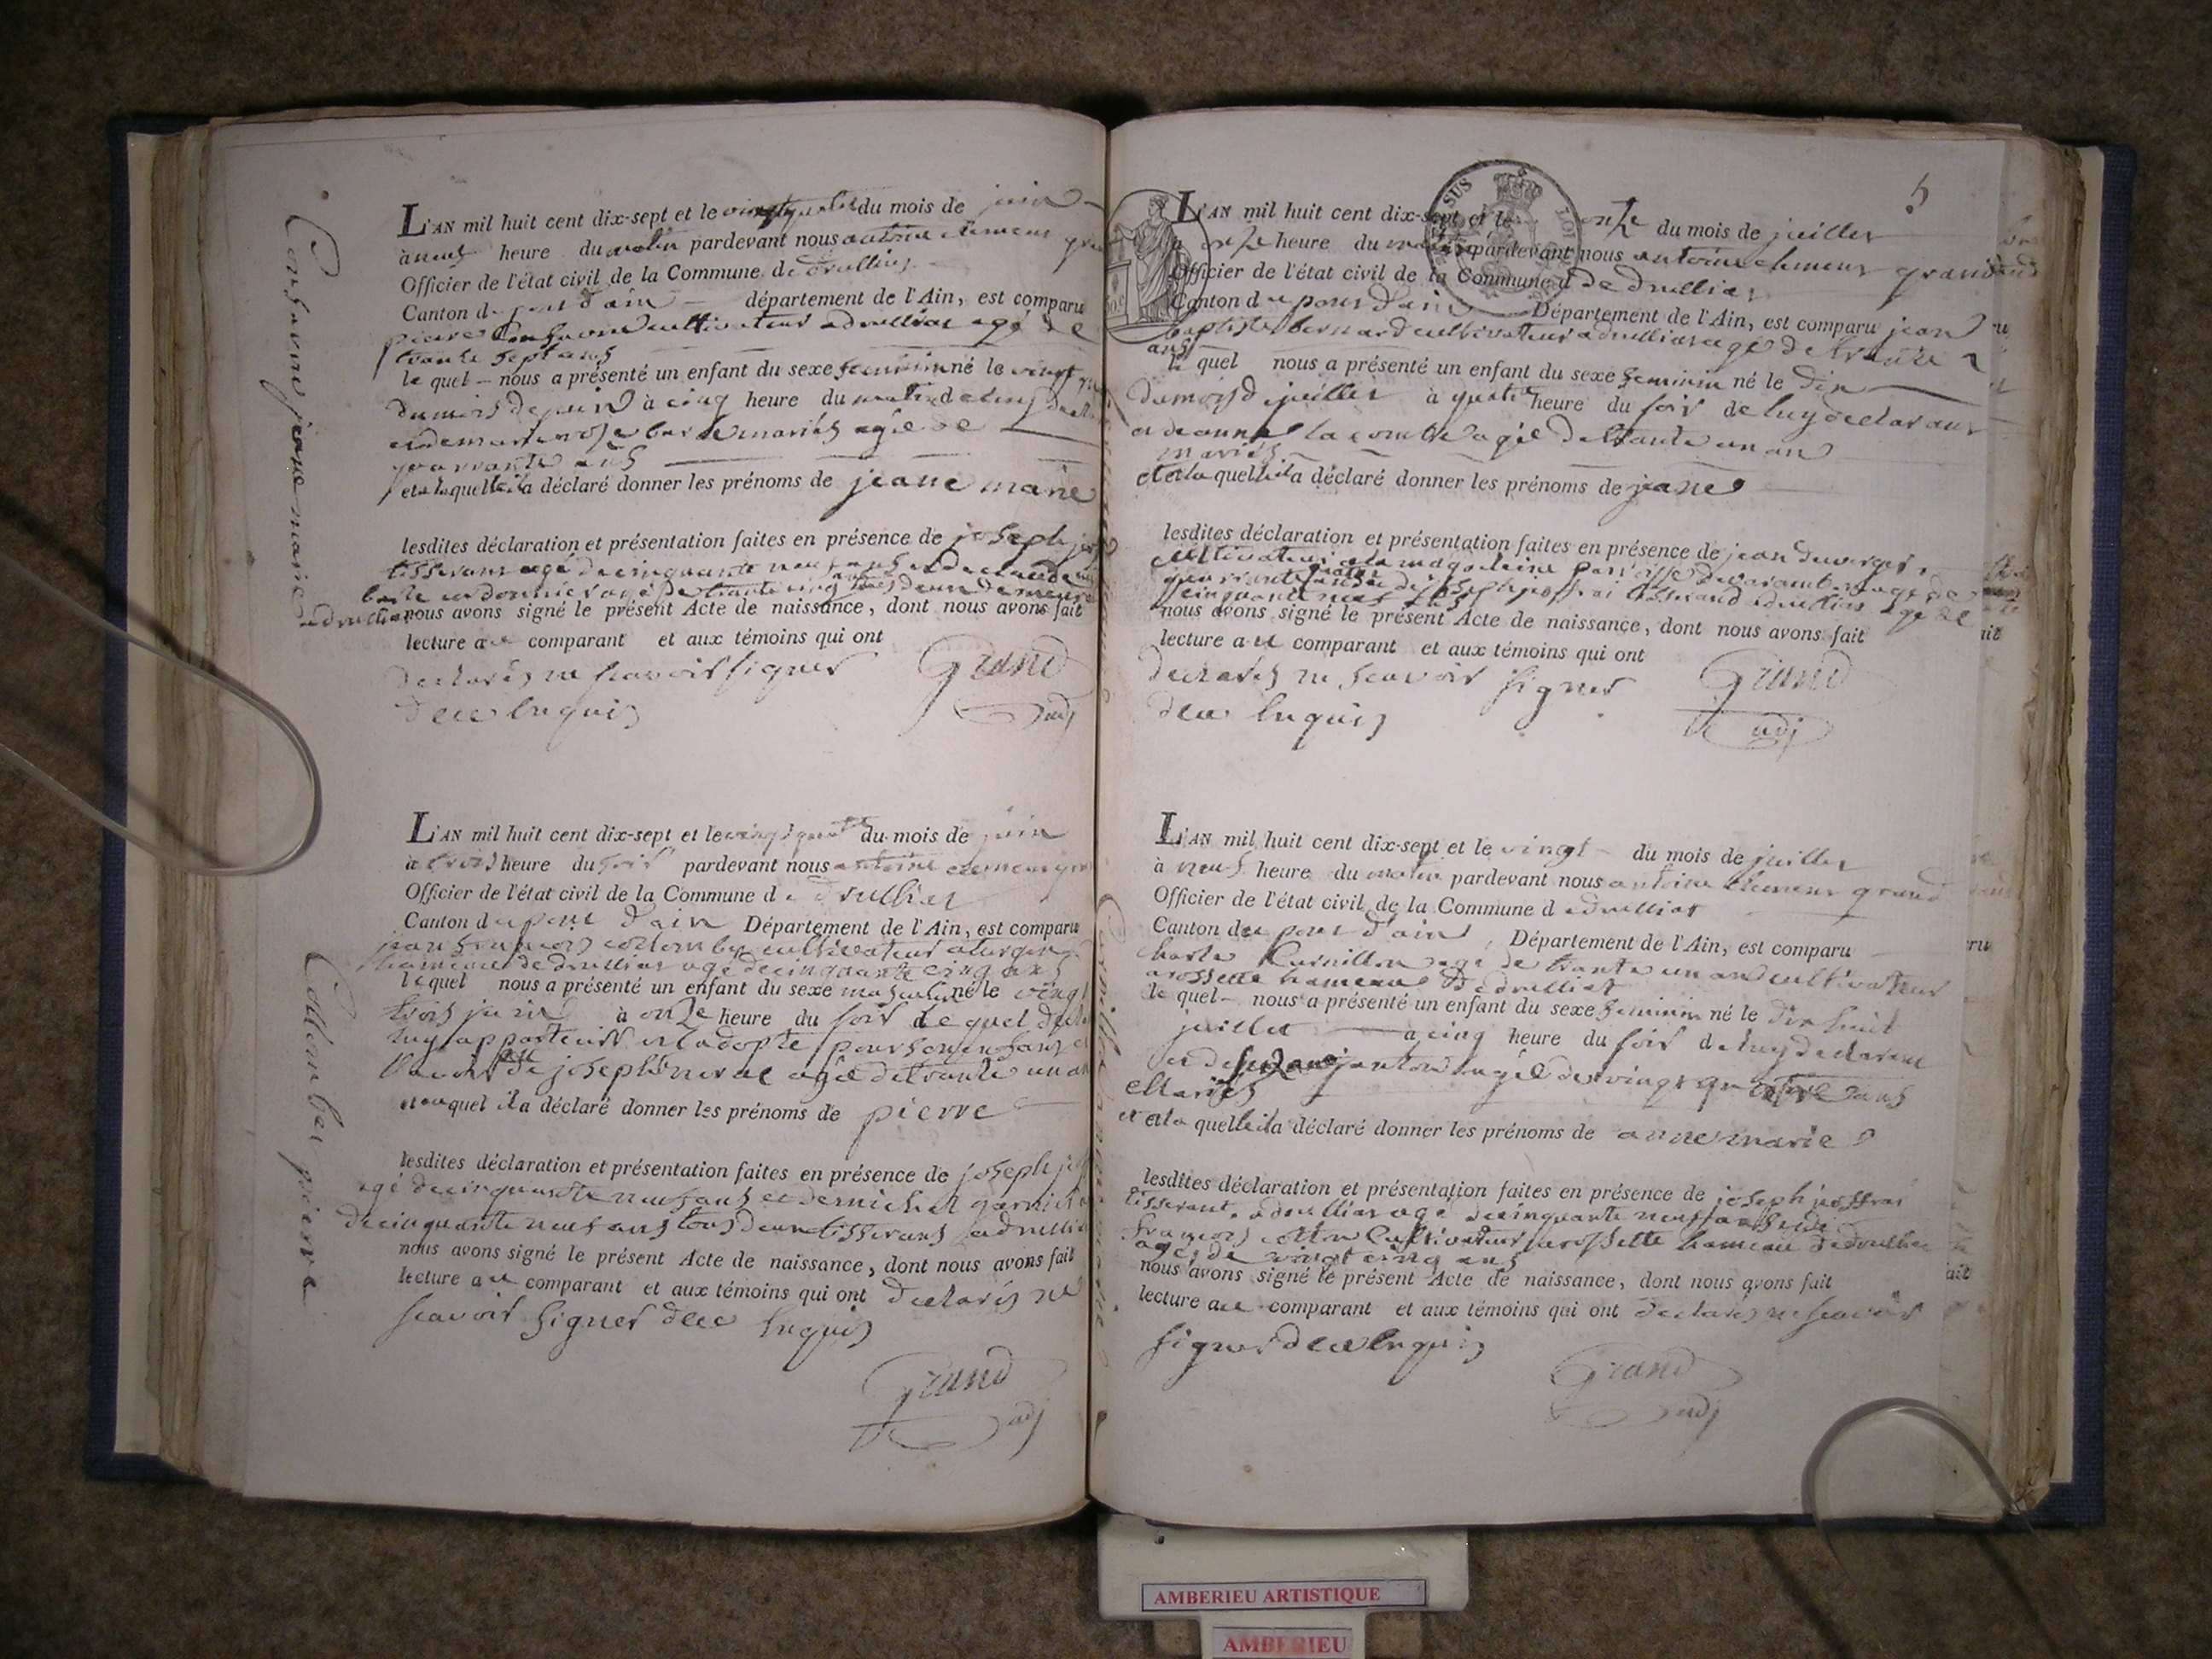 L'AN mil huit cent dix-sept et le vingt quatre du mois de juin
à neuf heure du matin pardevant nous antoine clement
Officier de l'état civil de la Commune de druillias
Canton du pont d'ain département de l'Ain, est comparu
pierre cultivateur a druillias agé de
trante sept ans
le quel nous a présenté un enfant du sexe feminin né le vingt
du mois de juin à cinq heure du matin de luy
et de mariés agée de
quarrante ans
et a laquelle il a déclaré donner les prénoms de jeane marie
lesdites déclaration et présentation faites en présence de joseph
tisserant agé de cinquante neuf ans et de claude
cordonnier agé de trante cinq ans tous deux
a druillias nous avons signé le présent Acte de naissance, dont nous avons fait
lecture au comparant et aux témoins qui ont
declarés ne scavoir signer Grand
de ce enquis adj
jeane marie
L'AN mil huit cent dix-sept et le vingt quatre du mois de juin
à trois heure du soir pardevant nous antoine clement
Officier de l'état civil de la Commune de druillias
Canton du pont d'ain Département de l'Ain, est comparu
jean françois collomber cultivateur a turgon
hameau de druillias agé de cinquante cinq ans
le quel nous a présenté un enfant du sexe masculin né le vingt
trois juin à onze heure du soir le quel
luy appartenir et l'adopte pour son enfant
de joseph agée de trante un
et au quel il a déclaré donner les prénoms de pierre
lesdites déclaration et présentation faites en présence de joseph
agé de cinquante neuf ans et de michel
de cinquante neuf ans tous deux tisserans a druillias
nous avons signé le présent Acte de naissance, dont nous avons fait
lecture au comparant et aux témoins qui ont declarés ne
scavoir signer de ce enquis
Grand
adj
Collomber pierre
5
L'AN mil huit cent dix-sept et le onze du mois de juillet
à onze heure du matin pardevant nous antoine clement grand
Officier de l'état civil de la Commune d de druillias
Canton du pont d'ain Département de l'Ain, est comparu jean
baptiste bernard cultivateur a druillias agé de trante
ans
le quel nous a présenté un enfant du sexe feminin né le dix
du mois de juillet à quatre heure du soir de luy declarant
et de anne la combe agée de trante un an
mariés
et a la quelle il a déclaré donner les prénoms de jeane
lesdites déclaration et présentation faites en présence de jean duverger
cultivateur a la magdeleine paroisse de varambon agé de
quarrante quatre ans et de joseph joffrai tisserand a druillias agé de
cinquante neuf ans
nous avons signé le présent Acte de naissance, dont nous avons fait
lecture au comparant et aux témoins qui ont
declarés ne scavoir signer Grand
de ce enquis adj
L'AN mil huit cent dix-sept et le vingt du mois de juillet
à neuf heure du matin pardevant nous antoine clement grand
Officier de l'état civil de la Commune d e druillias
Canton du pont d'ain, Département de l'Ain, est comparu
charle Curnillon agé de trante un an cultivateur
a rossette hameau de druillias
le quel nous a présenté un enfant du sexe feminin né le dix huit
juillet à cinq heure du soir de luy declarant
et de janton agée de vingt quatre ans
Mariés
et a la quelle il a déclaré donner les prénoms de anne marie
lesdites déclaration et présentation faites en présence de joseph joffrai
tisserant a druillias agé de cinquante neuf ans et de
françois cotton Cultivateur a rossette hameau de druillias
agés de vingt cinq ans
nous avons signé le présent Acte de naissance, dont nous avons fait
lecture au comparant et aux témoins qui ont declarés ne scavoir
signer de ce enquis
Grand
adj
AMBERIEU ARTISTIQUE
AMBERIEU